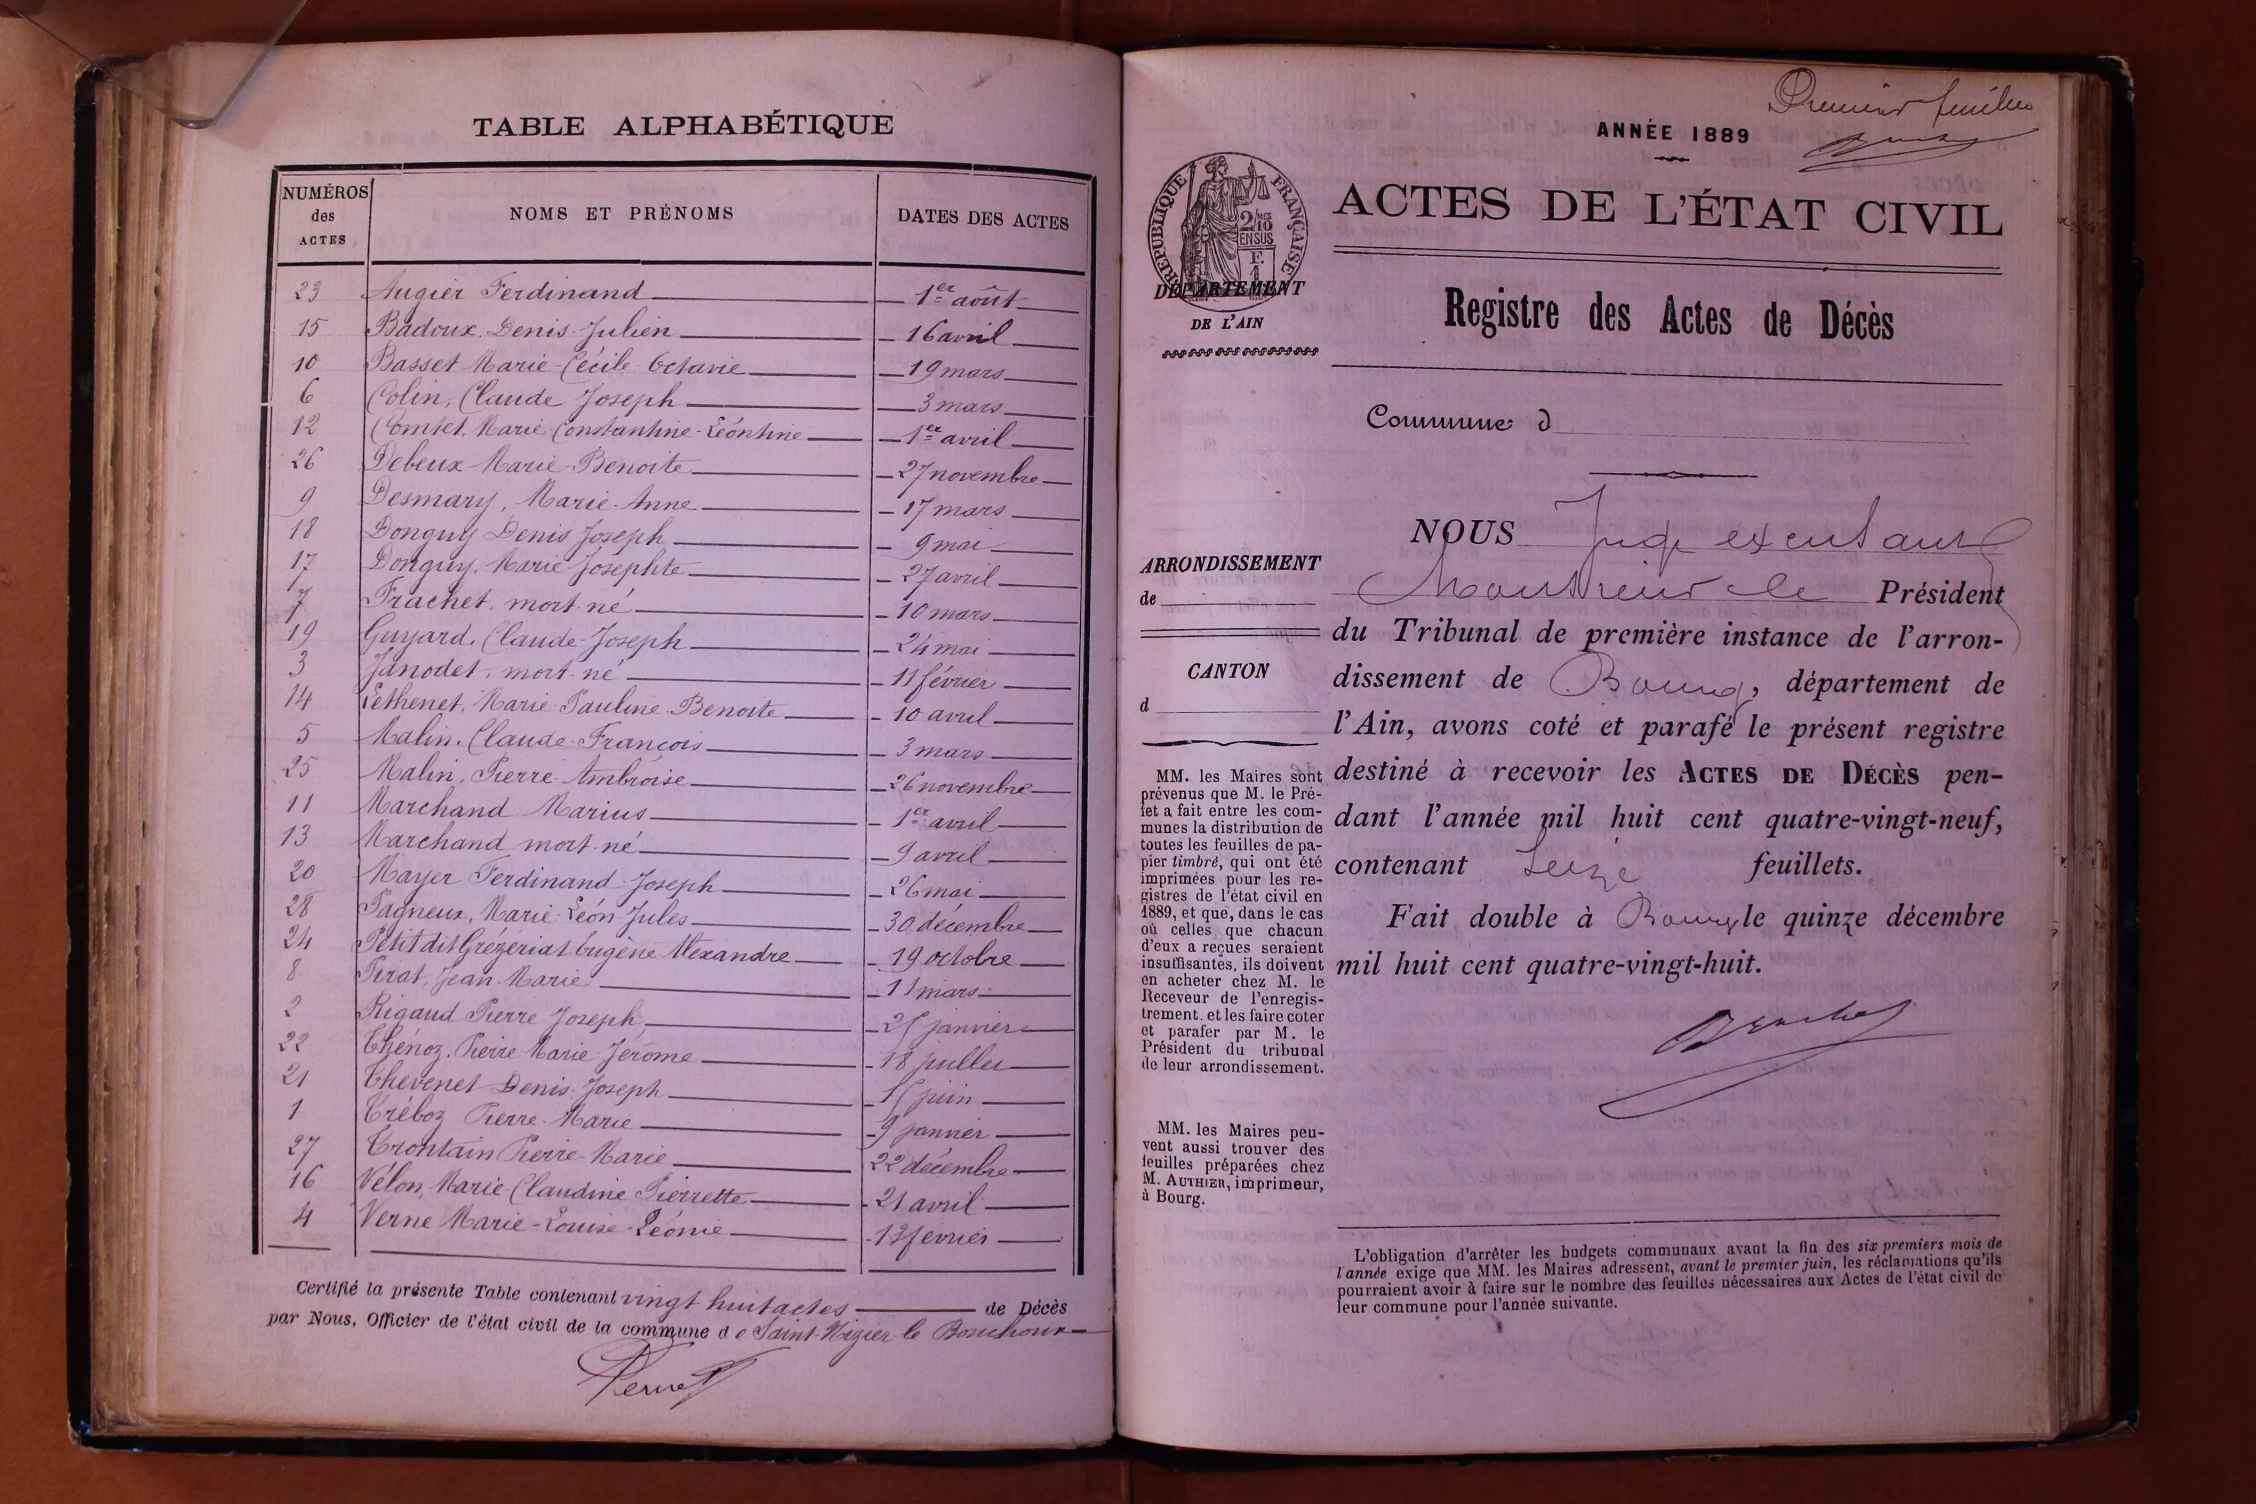 TABLE ALPHABÉTIQUE
NUMÉROS des ACTES NOMS ET PRÉNOMS DATES DES ACTES
23 Augier Ferdinand 1er août
15 Badoux, Denis-Julien 16 avril
10 Basset Marie-Cécile-Octavie 19 mars
6 Colin, Claude Joseph 3 mars
12 Comtet, Marie-Constantine-Léontine 1er avril
26 Debeux Marie-Benoite 27 novembre
9 Desmary, Marie-Anne 17 mars
18 Donguy Denis Joseph 9 mai
17 Donguy, Marie Josephte 27 avril
7 Frachet, mort-né 10 mars
19 Guyard, Claude-Joseph 24 mai
3 Janodet, mort-né 11 février
14 Lethenet, Marie-Pauline-Benoite 10 avril
5 Malin, Claude-François 3 mars
25 Malin, Pierre-Ambroise 26 novembre
11 Marchand Marius 1er avril
13 Marchand mort-né 9 avril
20 Mayer Ferdinand-Joseph 26 mai
28 Pagneux, Marie-Léon-Jules 30 décembre
24 Petit dit Grézériat Eugène Alexandre 19 octobre
8 Pirat, Jean-Marie 11 mars
2 Rigaud Pierre Joseph 25 janvier
22 Thénoz, Pierre-Marie-Jérôme 18 juillet
21 Thévenet Denis-Joseph 15 juin
1 Tréboz Pierre-Marie 9 janvier
27 Trontain Pierre-Marie 22 décembre
16 Vélon, Marie-Claudine Pierrette 21 avril
4 Verne Marie-Louise-Léonie 13 février
Certifié la présente Table contenant vingt huit actes de Décès
par Nous, Officier de l'état civil de la commune de Saint-Nizier le Bouchoux
Pernet
Premier feuillet
ANNÉE 1889
RÉPUBLIQUE FRANÇAISE
2/10 EN SUS
F. 1
ACTES DE L'ÉTAT CIVIL
DÉPARTEMENT
DE L'AIN
Registre des Actes de Décès
Commune d
NOUS Juge
ARRONDISSEMENT
de
Monsieur le Président
du Tribunal de première instance de l'arron-
dissement de Bourg, département de
l'Ain, avons coté et parafé le présent registre
destiné à recevoir les ACTES DE DÉCÈS pen-
dant l'année mil huit cent quatre-vingt-neuf,
contenant seize feuillets.
Fait double à Bourg le quinze décembre
mil huit cent quatre-vingt-huit.
CANTON
d
MM. les Maires sont
prévenus que M. le Pré-
fet a fait entre les com-
munes la distribution de
toutes les feuilles de pa-
pier timbré, qui ont été
imprimées pour les re-
gistres de l'état civil en
1889, et que, dans le cas
où celles que chacun
d'eux a reçues seraient
insuffisantes, ils doivent
en acheter chez M. le
Receveur de l'enregis-
trement, et les faire coter
et parafer par M. le
Président du tribunal
de leur arrondissement.
MM. les Maires peu-
vent aussi trouver des
feuilles préparées chez
M. AUTHIER, imprimeur,
à Bourg.
L'obligation d'arrêter les budgets communaux avant la fin des six premiers mois de
l'année exige que MM. les Maires adressent, avant le premier juin, les réclamations qu'ils
pourraient avoir à faire sur le nombre des feuilles nécessaires aux Actes de l'état civil de
leur commune pour l'année suivante.